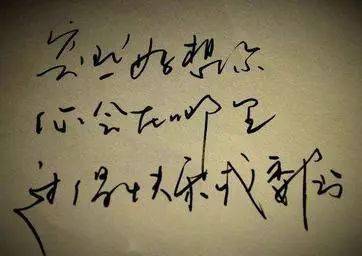 突然好想你
你会在哪里
过得快乐或委屈